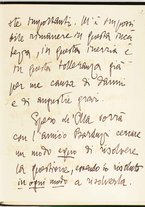 ste importanti. M'è impossi
bile rimanere in questa incer
tezza, in questa inerzia e
in questa tolleranza già
per me causa di danni
e di angustie gravi.
Spero di Ella vorrà
con l'amico Bardesi cercare
un modo equo di risolvere
la questione, essendo io risoluto
in ogni modo a risolverla.